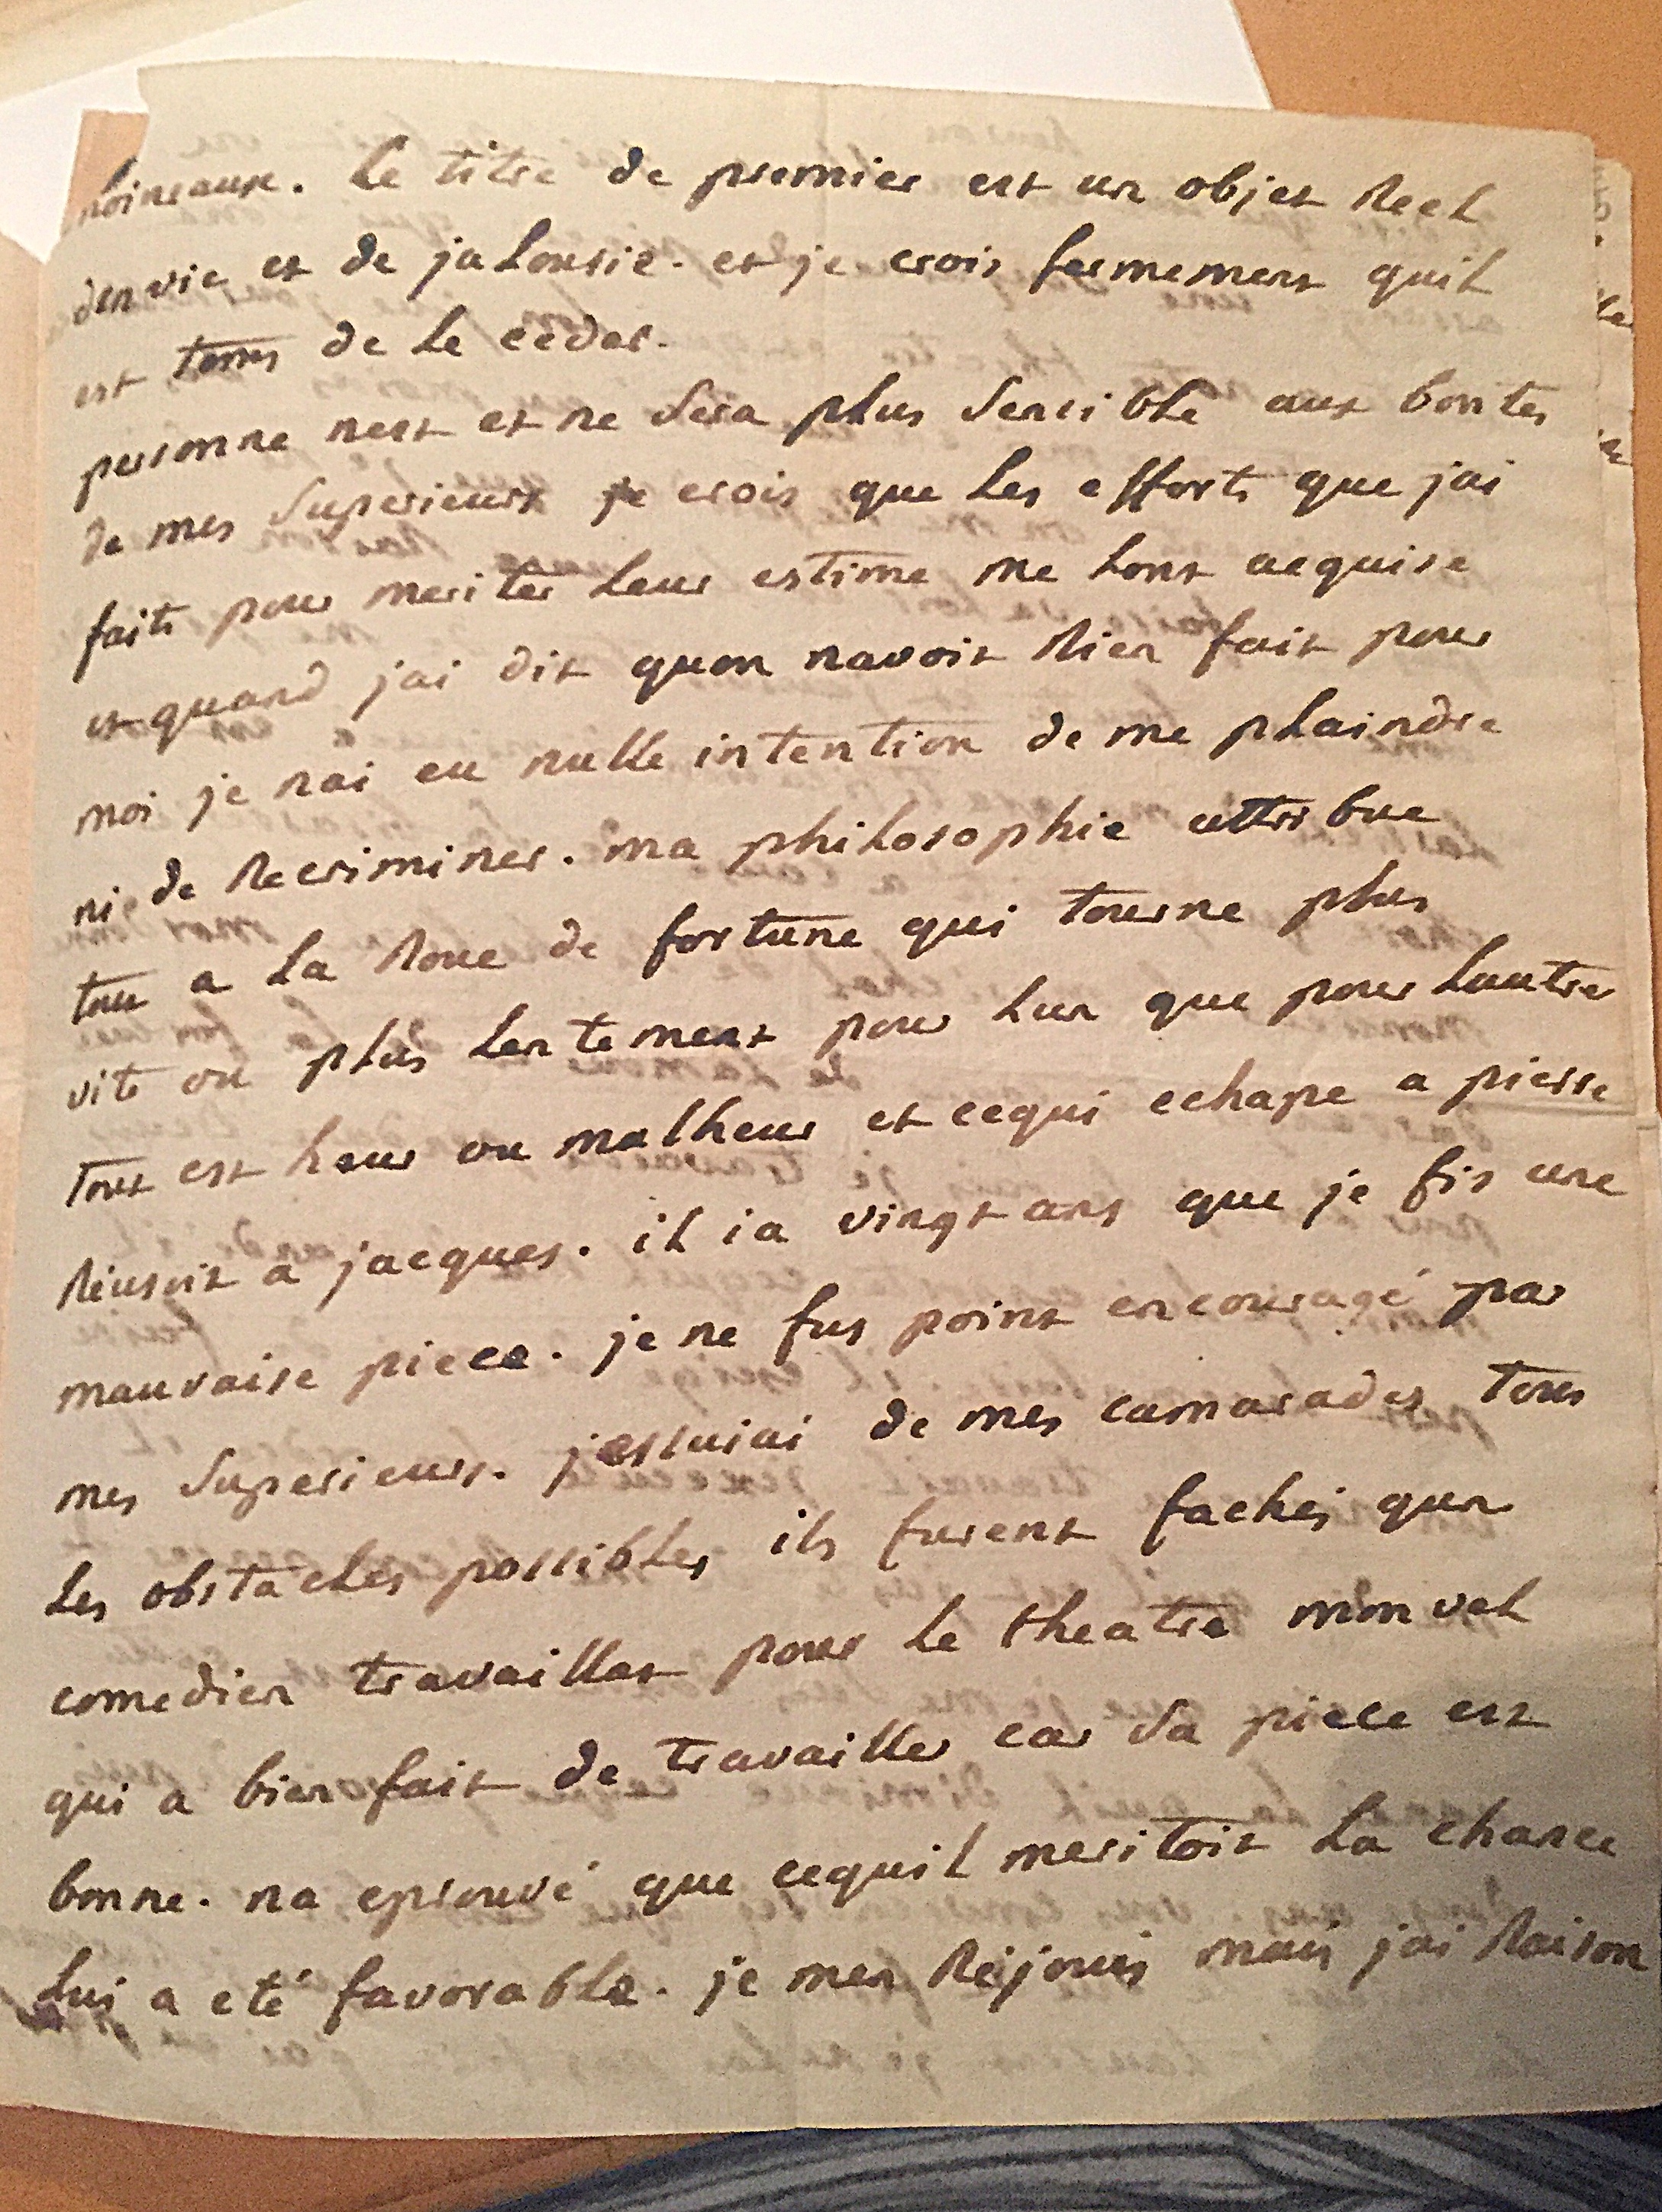 Le titre de premier est un objet Reel
denvie et de jalousie. et je crois fermement quil
est tems de le ceder.
personne nest et ne sera plus sensible aux bontes
de mes superieurs je crois que les efforts que jai
faits pour meriter leur estime me lont acquise
et quand jai dit quon navoit Rien fait pour
moi je nai eu nulle intention de me plaindre
ni de Recriminer. ma philosophie attribue
tou a la Roue de fortune qui tourne plus
vite ou plus lentement pour lun que pour lautre
tout est heur ou malheur et cequi echape a pierre
Réussit a jacques. il ia vingt ans que je fis une
mauvaise piece. je ne fus point encouragé par
mes superieurs. jessuiai de mes camarades tous
les obstacles possibles ils furent fachés quun
comedien travaillat pour le theatre monvel
qui a bien fait de travailler car sa piece est
bonne. na eprouvé que cequil meritoit la chance
lui a eté favorable. je men Réjouis mais jai Raison